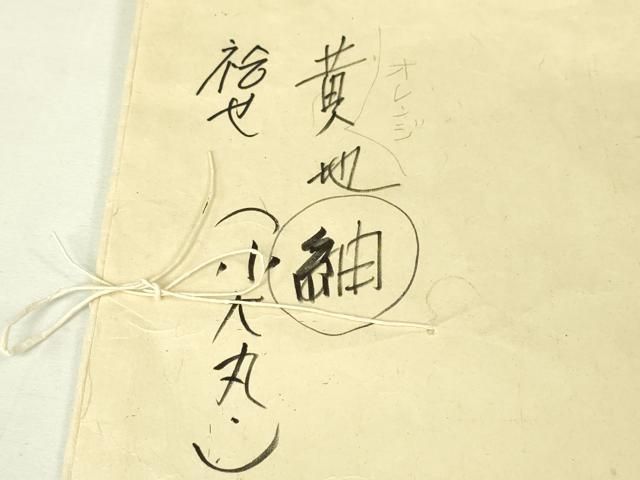 オレンジ
黄地紬
袷せ(小大丸.)